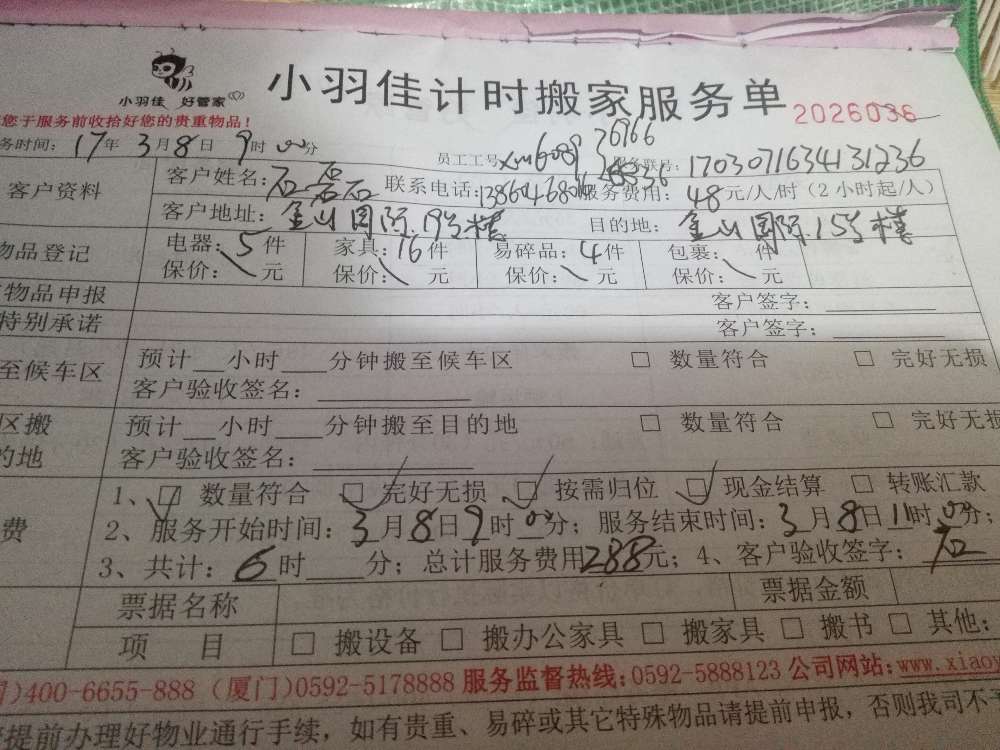 小羽佳 好管家
小羽佳计时搬家服务单 2026036
您于服务前收拾好您的贵重物品！
务时间：17年3月8日9时00分
员工工号 服务联号：1703071634131236
客户资料
客户姓名： 联系电话： 服务费用：48元/人/时（2小时起/人）
客户地址：金山国际19号楼 目的地：金山国际15号楼
物品登记
电器：5件 家具：16件 易碎品：4件 包裹：\件
保价：\元 保价：\元 保价：\元 保价：\元
物品申报 客户签字：
特别承诺 客户签字：
至候车区
预计__小时___分钟搬至候车区 □ 数量符合 □ 完好无损
客户验收签名：
区搬
的地
预计__小时___分钟搬至目的地 □ 数量符合 □ 完好无损
客户验收签名：
费
1、☑ 数量符合 ☑ 完好无损 ☑ 按需归位 ☑ 现金结算 □ 转账汇款
2、服务开始时间：3月8日9时00分；服务结束时间：3月8日11时00分；
3、共计：6时____分；总计服务费用288元；4、客户验收签字：石
票据名称 票据金额
项 目 □ 搬设备 □ 搬办公家具 □ 搬家具 □ 搬书 □ 其他：
)400-6655-888（厦门)0592-5178888 服务监督热线：0592-5888123 公司网站：www.xiaoy
提前办理好物业通行手续，如有贵重、易碎或其它特殊物品请提前申报，否则我司不